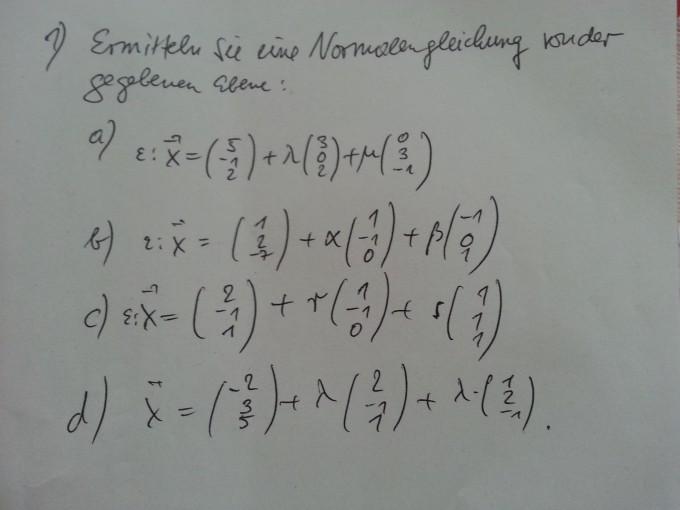 1) Ermitteln Sie eine Normalengleichung von der
gegebenen Ebene:
a) ε: x⃗ = (5 -1 2) + λ (3 0 2) + μ (0 3 -1)
b) ε: x⃗ = (1 2 -7) + α (1 -1 0) + β (-1 0 1)
c) ε: x⃗ = (2 -1 1) + r (1 -1 0) + s (1 1 1)
d) x⃗ = (-2 3 5) + λ (2 -1 1) + λ · (1 2 -1).